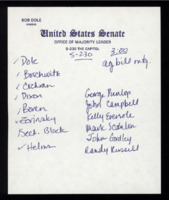 BOB DOLE
KANSAS
United States Senate
OFFICE OF MAJORITY LEADER
S-230 THE CAPITOL
S-230
3:00
ag bill mtg.
✓ Dole
✓ Boschwitz
✓ Cochran
✓ Dixon
✓ Boren
✓ Zorinsky
Sec. Block
✓ Helms
George Dunlop
John Campbell
Kathy Eversole
Mark Scanlan
John Gordley
Randy Russell